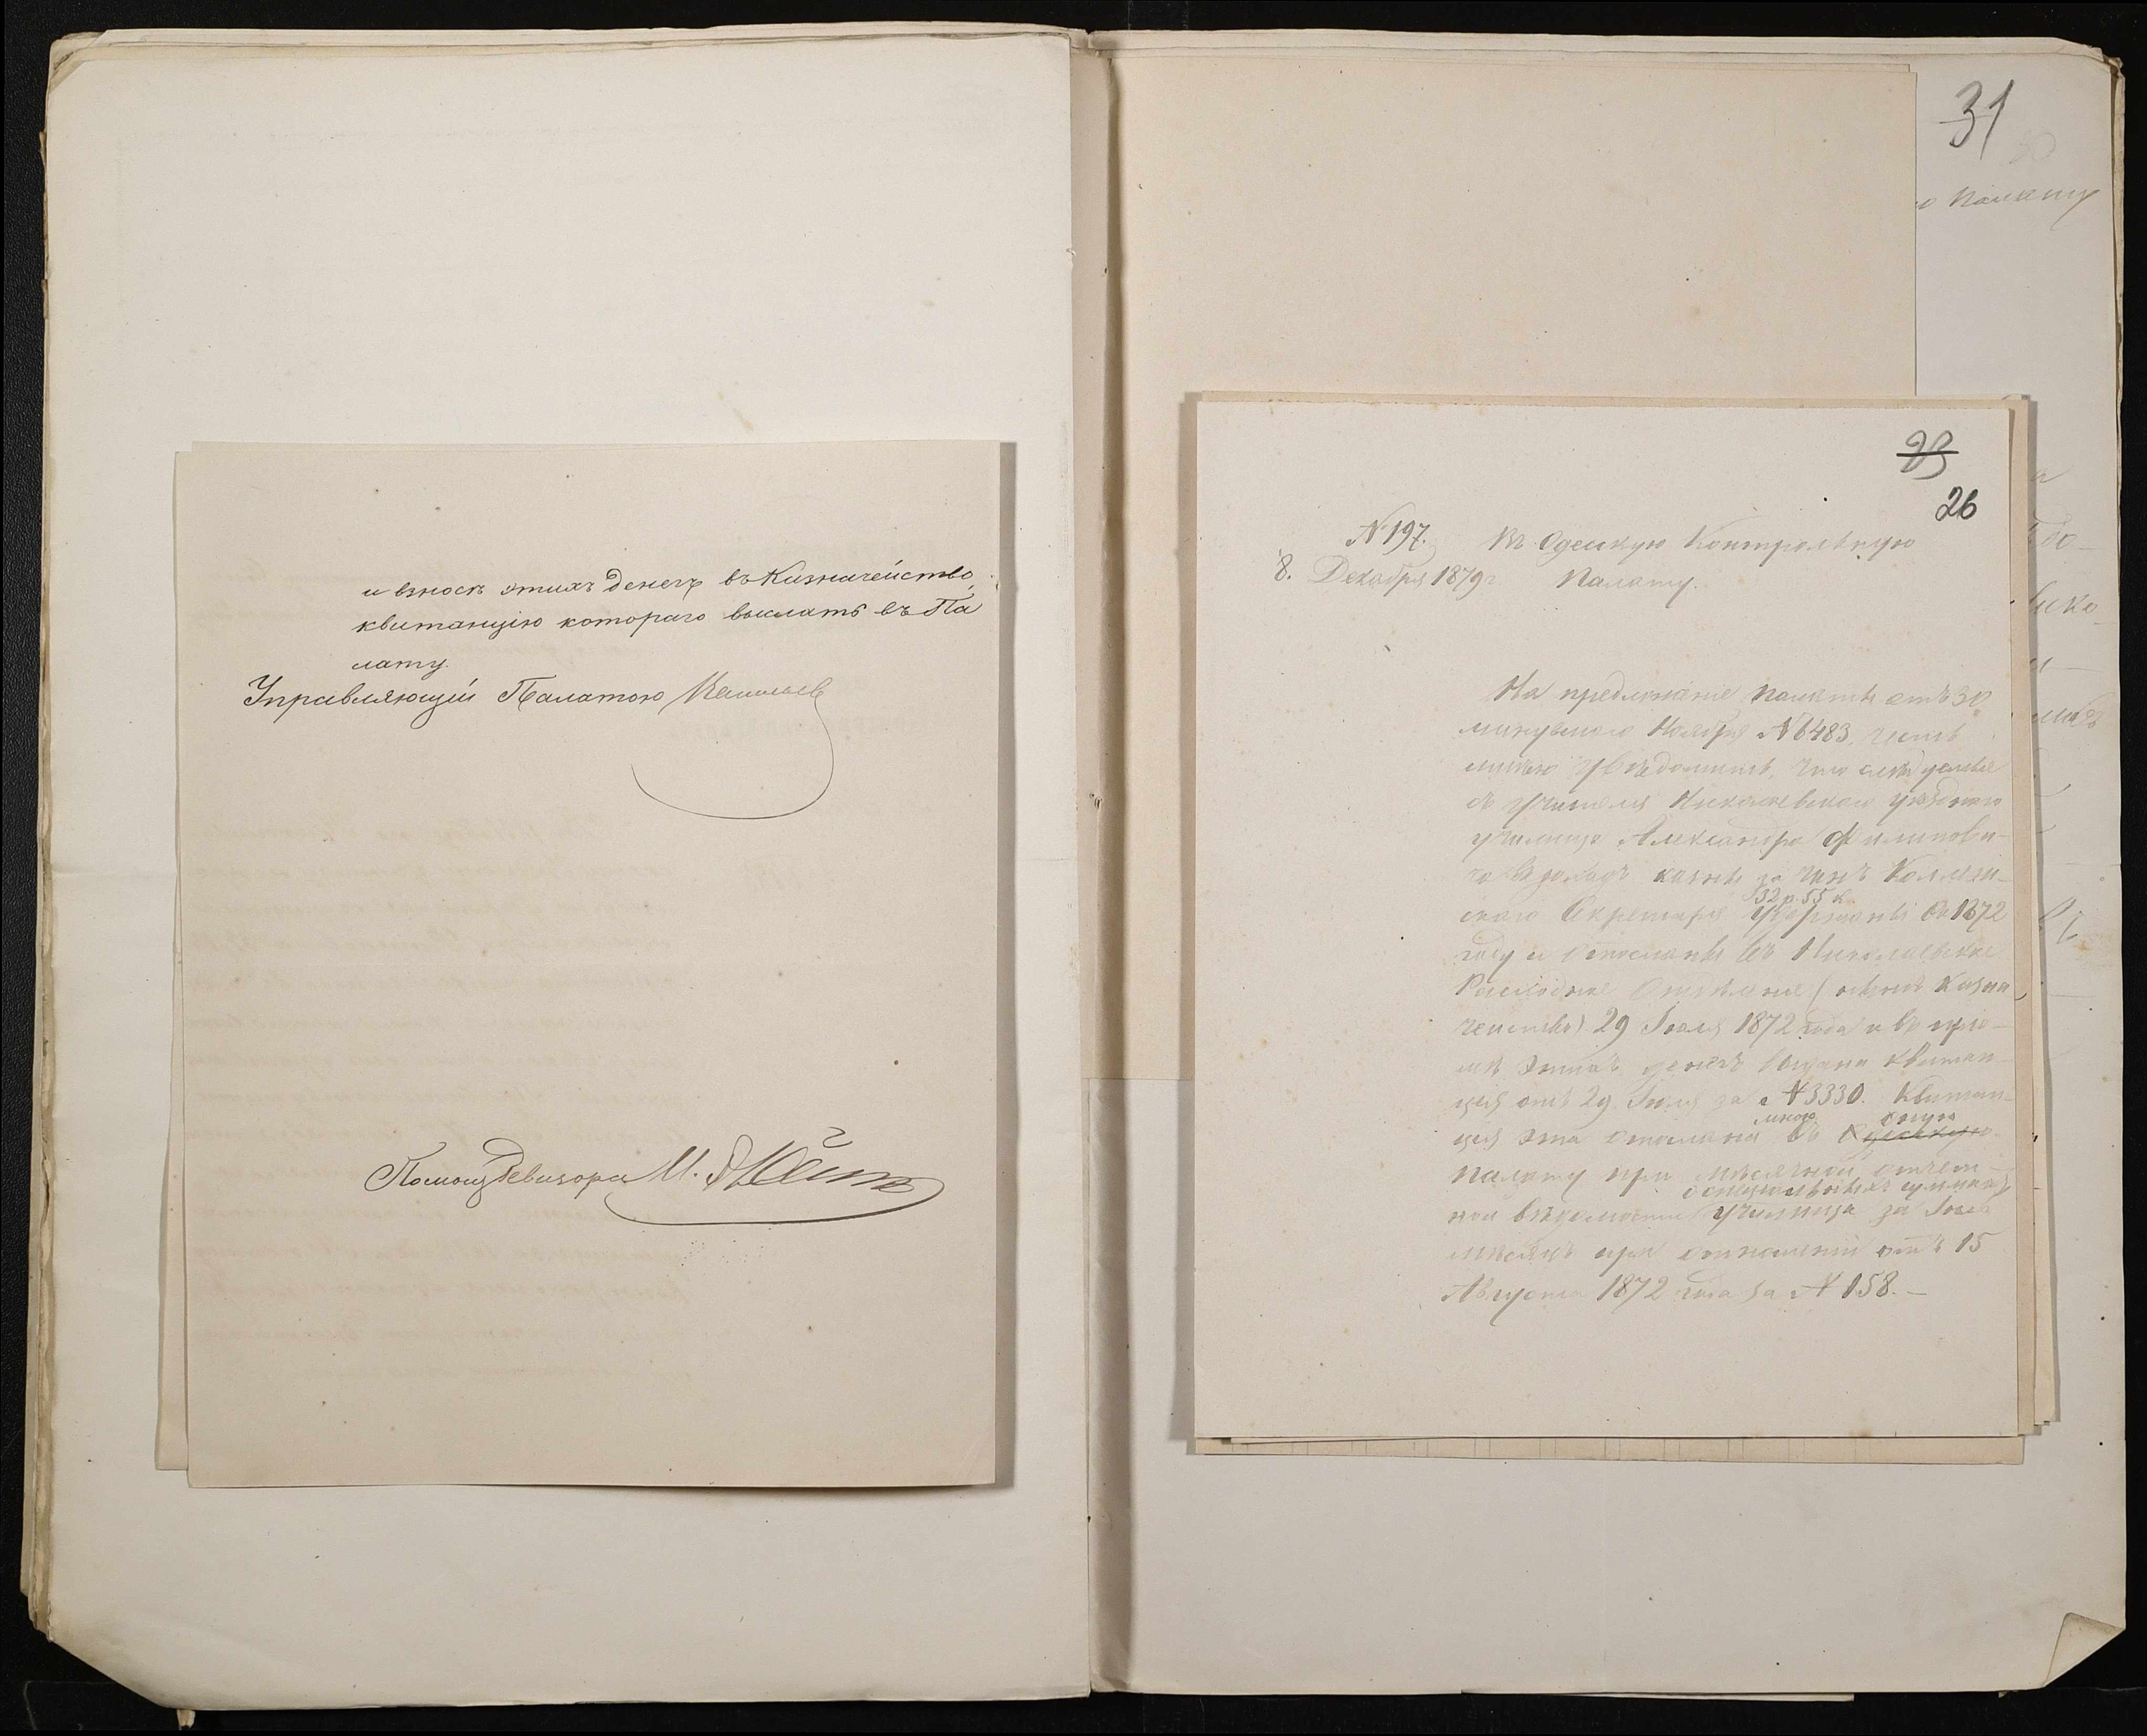 и взносѣ этихъ денегъ въ Казначейство,
квитанцію котораго выслать въ Па
лату.
Управляющій Палатою
Помощ Ревизора М.
31
о Палату
23
26
N 197.
8. Декабря 1879 г.
Въ Одескую Контрольную
Палату.
На предложеніе Палаты отъ 30
минувшаго Ноября N 6483, честь
имѣю увѣдомить, что слѣдуемые
съ учителя Николаевскаго уѣзднаго
училища Александра Филипови-
ча въ доходъ казны за чинъ Коллеж-
32 р 55 к
скаго Секретаря удержаны въ 1872
году и отосланы въ Николаевское
Расходное Отдѣленіе ( Казна
чейства) 29 Іюля 1872 года и въ прі-
мѣ этихъ денегъ выдана квитан-
ція отъ 29 Іюля за N 3330. Квитан-
мною оную
ція эта отослана въ Одесскую
Палату при мѣсячной отчет-
о спеціальныхъ суммахъ
ной вѣдомости училища за Іюль
мѣсяцъ при отношеніи отъ 15
Августа 1872 года за N 158. –